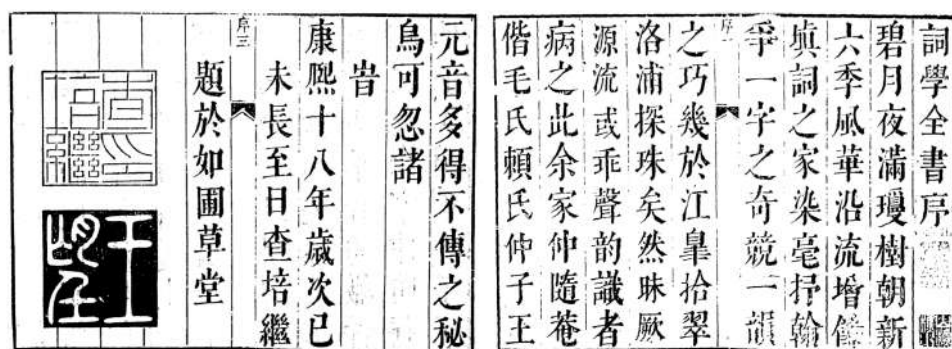 詞學全書序
碧月夜滿瓊樹朝新
六季風華沿流增
塡詞之家染毫抒翰
爭一字之奇競一韻
序一
之巧幾於江臯拾翠
洛浦探珠矣然昧厥
源流或乖聲韵識者
病之此余家仲隨菴
偕毛氏賴氏仲子王
元音多得不傳之秘
烏可忽諸
旹
康熙十八年歲次己
未長至日查培繼
序三
題於如圃草堂
查培繼印
王望